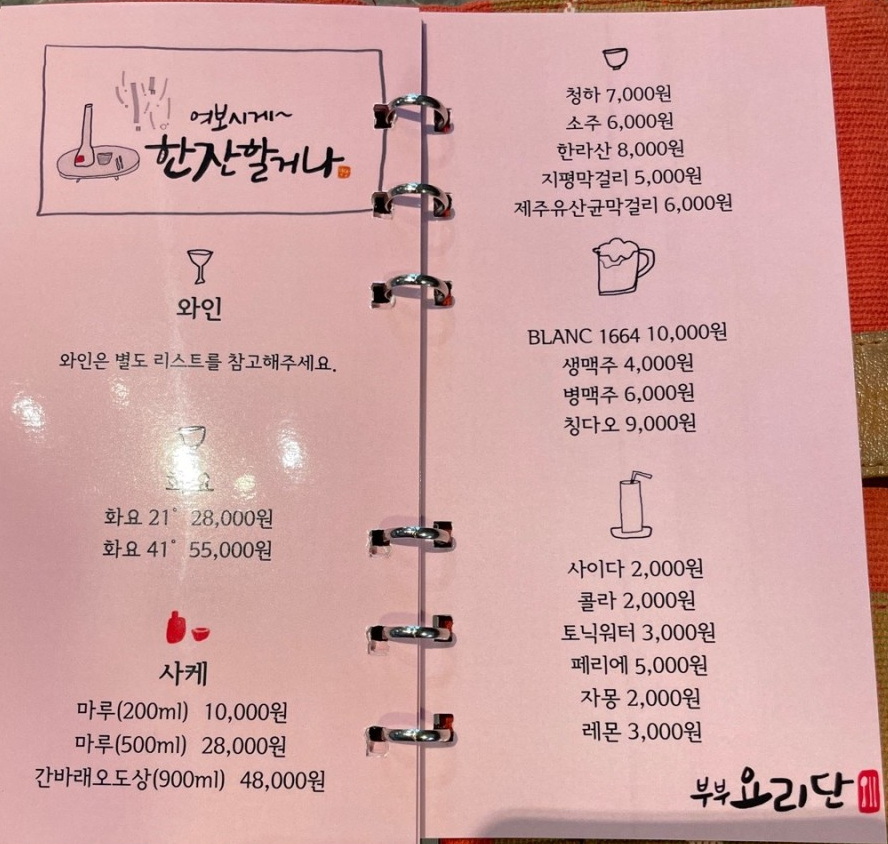 여보시게~
한잔할거나
와인
와인은 별도 리스트를 참고해주세요.
화요
화요 21° 28,000원
화요 41° 55,000원
사케
마루(200ml) 10,000원
마루(500ml) 28,000원
간바래오도상(900ml) 48,000원
청하 7,000원
소주 6,000원
한라산 8,000원
지평막걸리 5,000원
제주유산균막걸리 6,000원
BLANC 1664 10,000원
생맥주 4,000원
병맥주 6,000원
칭다오 9,000원
사이다 2,000원
콜라 2,000원
토닉워터 3,000원
페리에 5,000원
자몽 2,000원
레몬 3,000원
부부요리단